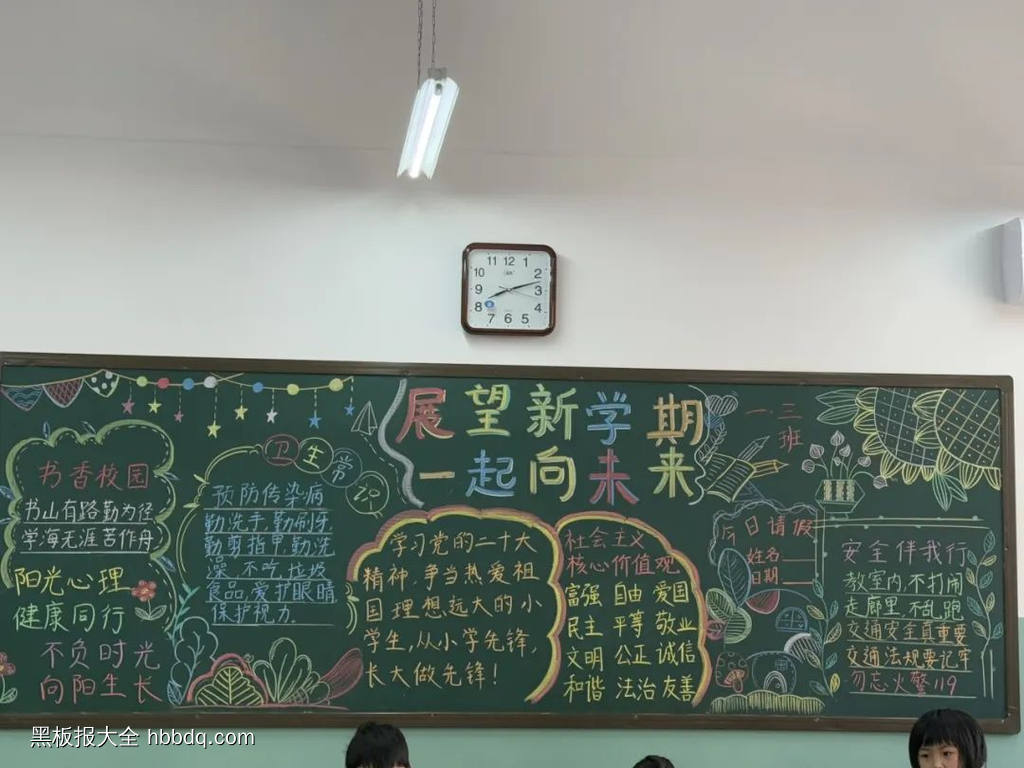 11 12 1
10 2
9 3
8 4
7 6 5
展望新学期
一起向未来
一.三
班
书香校园
书山有路勤为径
学海无涯苦作舟
阳光心理
健康同行
不负时光
向阳生长
卫生常识
预防传染病
勤洗手,勤刷牙
勤剪指甲,勤洗
澡,不吃垃圾
食品,爱护眼睛
保护视力.
学习党的二十大
精神,争当热爱祖
国理想远大的小
学生,从小学先锋,
长大做先锋!
社会主义
核心价值观
富强 自由 爱国
民主 平等 敬业
文明 公正 诚信
和谐 法治 友善
今日请假
姓名
日期
安全伴我行
教室内,不打闹
走廊里,不乱跑
交通安全真重要
交通法规要记牢
勿忘火警119
黑板报大全 hbbdq.com